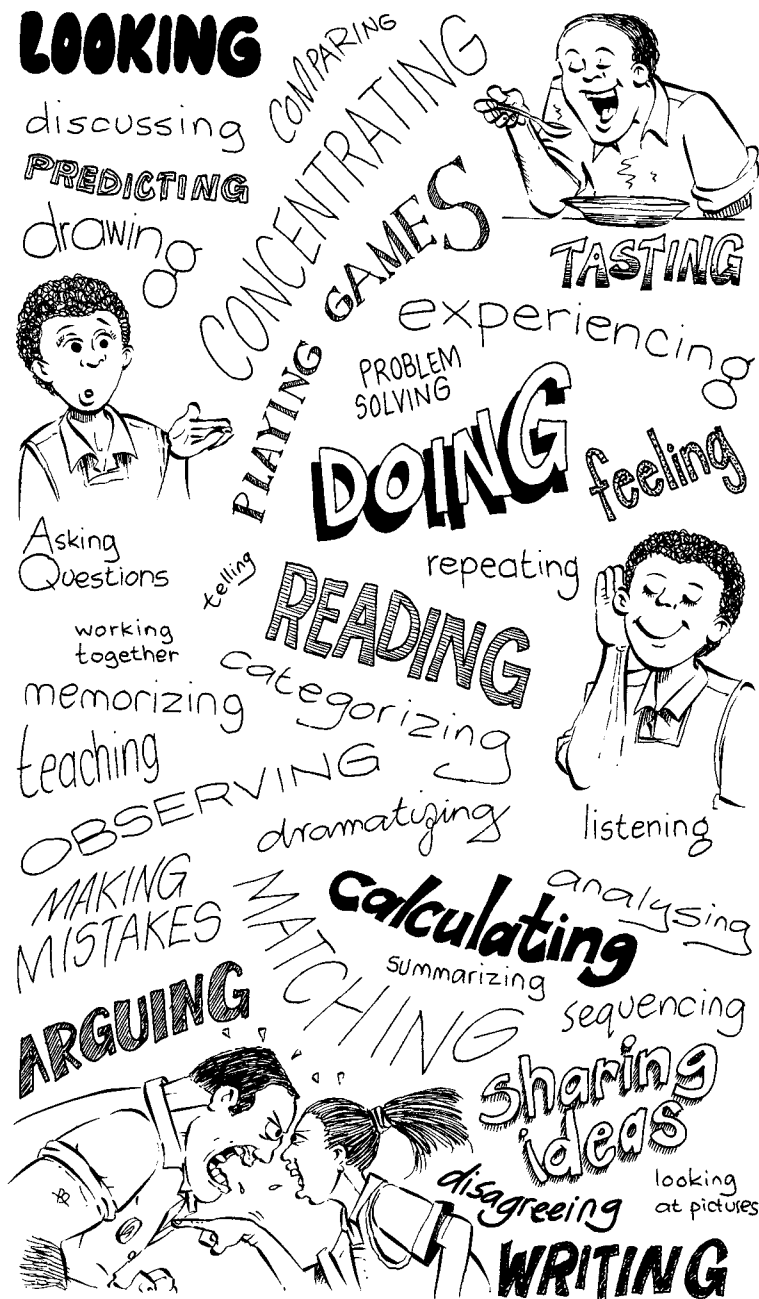 LOOKING
COMPARING
discussing
CONCENTRATING
PREDICTING
drawing
PLAYING GAMES
TASTING
experiencing
PROBLEM
SOLVING
DOING
feeling
Asking
Questions
telling
repeating
READING
working
together
categorizing
memorizing
teaching
OBSERVING
dramatizing
listening
MAKING
MISTAKES
MATCHING
calculating
analysing
summarizing
sequencing
ARGUING
sharing
ideas
disagreeing
looking
at pictures
WRITING